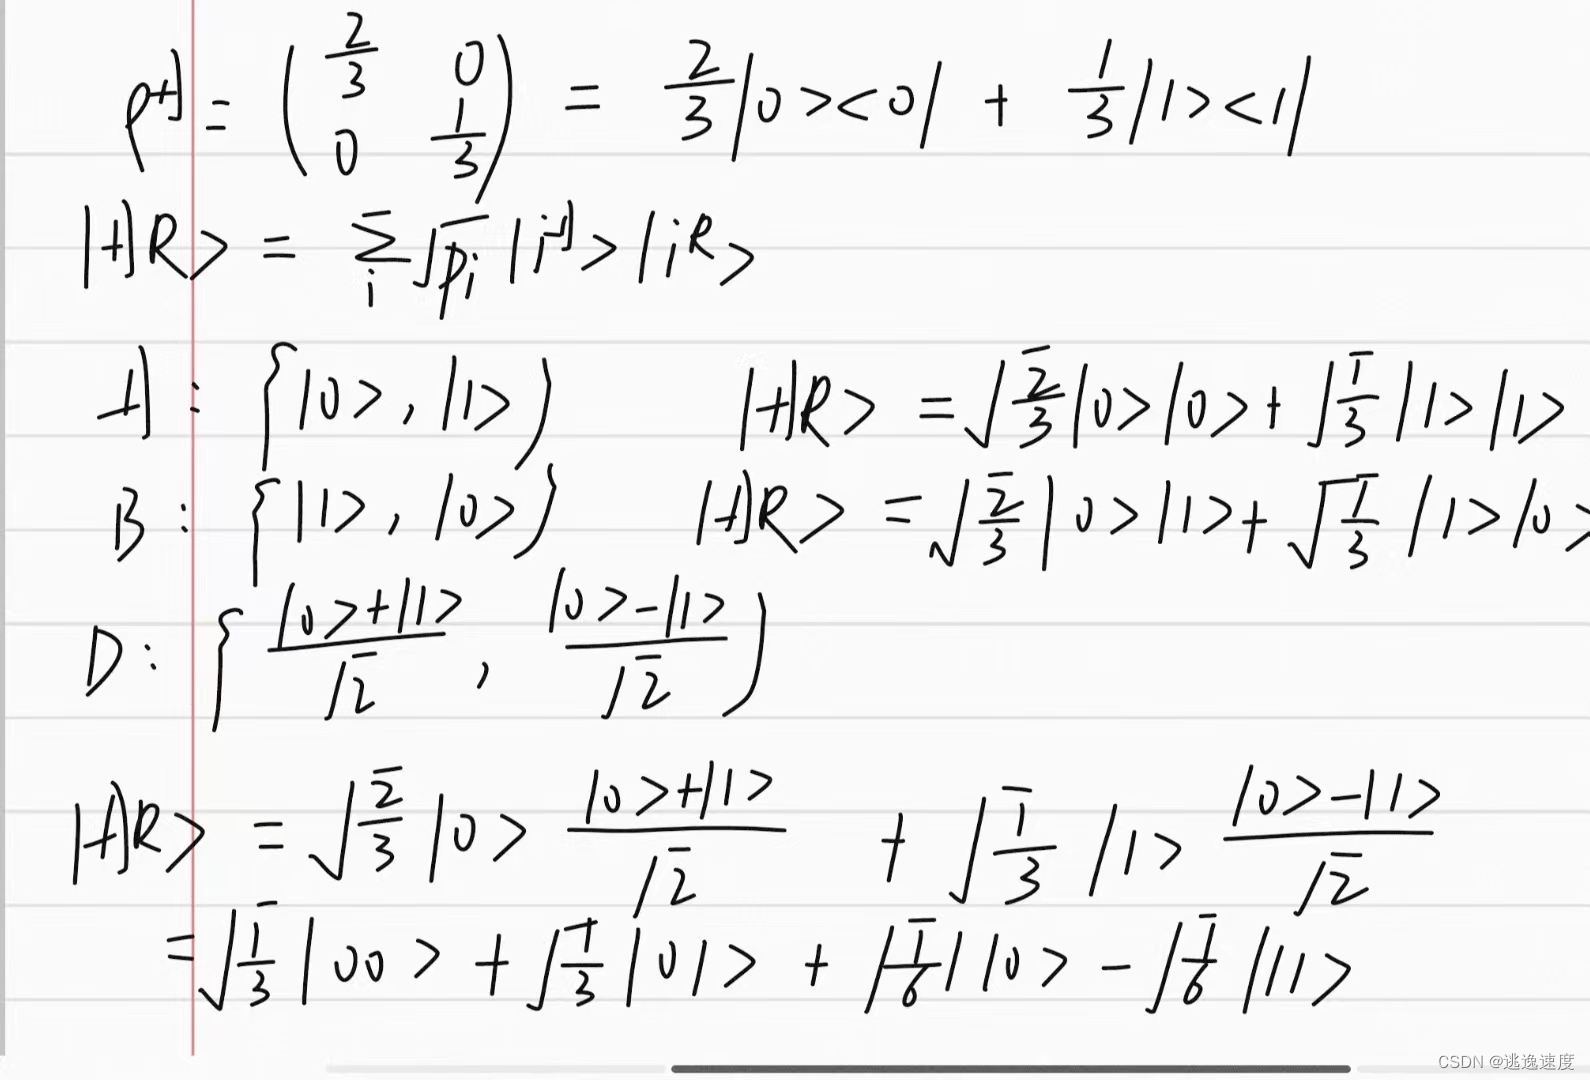 ρᴬ = ( 2/3 0 ; 0 1/3 ) = 2/3 |0><0| + 1/3 |1><1|
|AR> = Σᵢ √pᵢ |iᴬ> |iᴿ>
A : {|0>, |1>} |AR> = √(2/3) |0>|0> + √(1/3) |1>|1>
B : {|1>, |0>} |AR> = √(2/3) |0>|1> + √(1/3) |1>|0>
D : { (|0>+|1>)/√2 , (|0>-|1>)/√2 }
|AR> = √(2/3) |0> (|0>+|1>)/√2 + √(1/3) |1> (|0>-|1>)/√2
= √(1/3) |00> + √(1/3) |01> + √(1/6) |10> - √(1/6) |11>
CSDN @逃逸速度